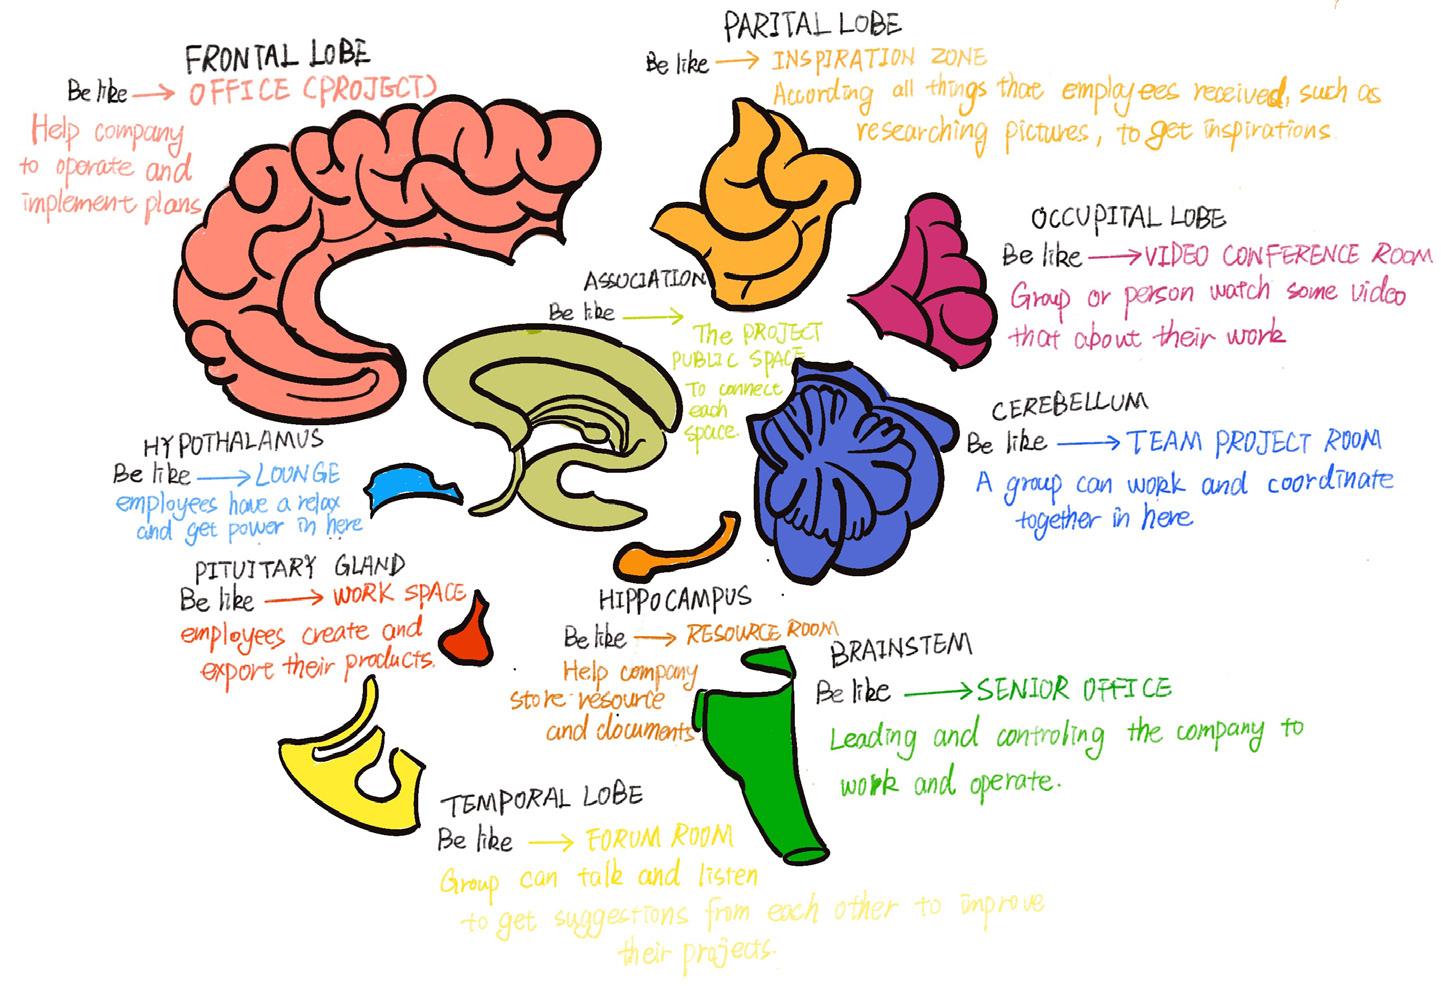 FRONTAL LOBE
Be like → OFFICE (PROJECT)
Help company
to oporate and
implement plans
PARITAL LOBE
Be like → INSPIRATION ZONE
According all things that employees received, such as
researching pictures, to get inspirations.
OCCUPITAL LOBE
Be like → VIDEO CONFERENCE ROOM
Group or person watch some video
that about their work
ASSOCIATION
Be like →
The PROJECT
PUBLIC SPACE
To connect
each
space.
CEREBELLUM
Be like → TEAM PROJECT ROOM
A group can work and coordinate
together in here
HYPOTHALAMUS
Be like → LOUNGE
employees have a relax
and get power in here
PITUITARY GLAND
Be like → WORK SPACE
employees create and
export their products.
HIPPOCAMPUS
Be like → RESOURCE ROOM
Help company
store resource
and documents
BRAINSTEM
Be like → SENIOR OFFICE
Leading and controling the company to
work and operate.
TEMPORAL LOBE
Be like → FORUM ROOM
Group can talk and listen
to get suggestions from each other to improve
their projects.